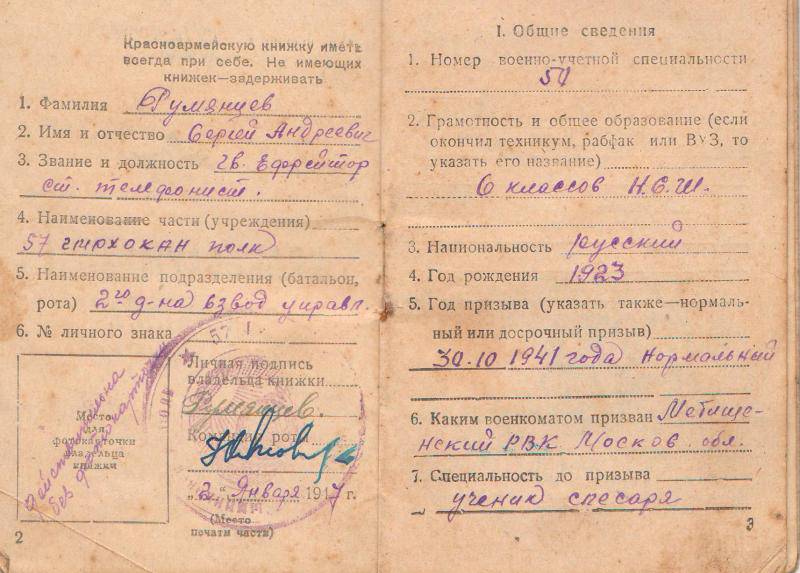 Красноармейскую книжку иметь
всегда при себе. Не имеющих
книжек—задерживать
1. Фамилия Румянцев
2. Имя и отчество Сергей Андреевич
3. Звание и должность гв. Ефрейтор
ст. телефонист.
4. Наименование части (учреждения)
57 полк
5. Наименование подразделения (батальон,
рота) 2го д-на взвод управл.
6. № личного знака
Место
для
фотокарточки
владельца
книжки
Действительна
без фотокарточки
Личная подпись
владельца книжки
Румянцев.
Командир роты
„2" Января 1947 г.
(Место
печати части)
2
I. Общие сведения
1. Номер военно-учетной специальности
50
2. Грамотность и общее образование (если
окончил техникум, рабфак или ВУЗ, то
указать его название)
6 классов Н.С.Ш.
3. Национальность русский
4. Год рождения 1923
5. Год призыва (указать также—нормаль-
ный или досрочный призыв)
30.10 1941 года Нормальный
6. Каким военкоматом призван
РВК Москов. обл.
7. Специальность до призыва
ученик слесаря
3